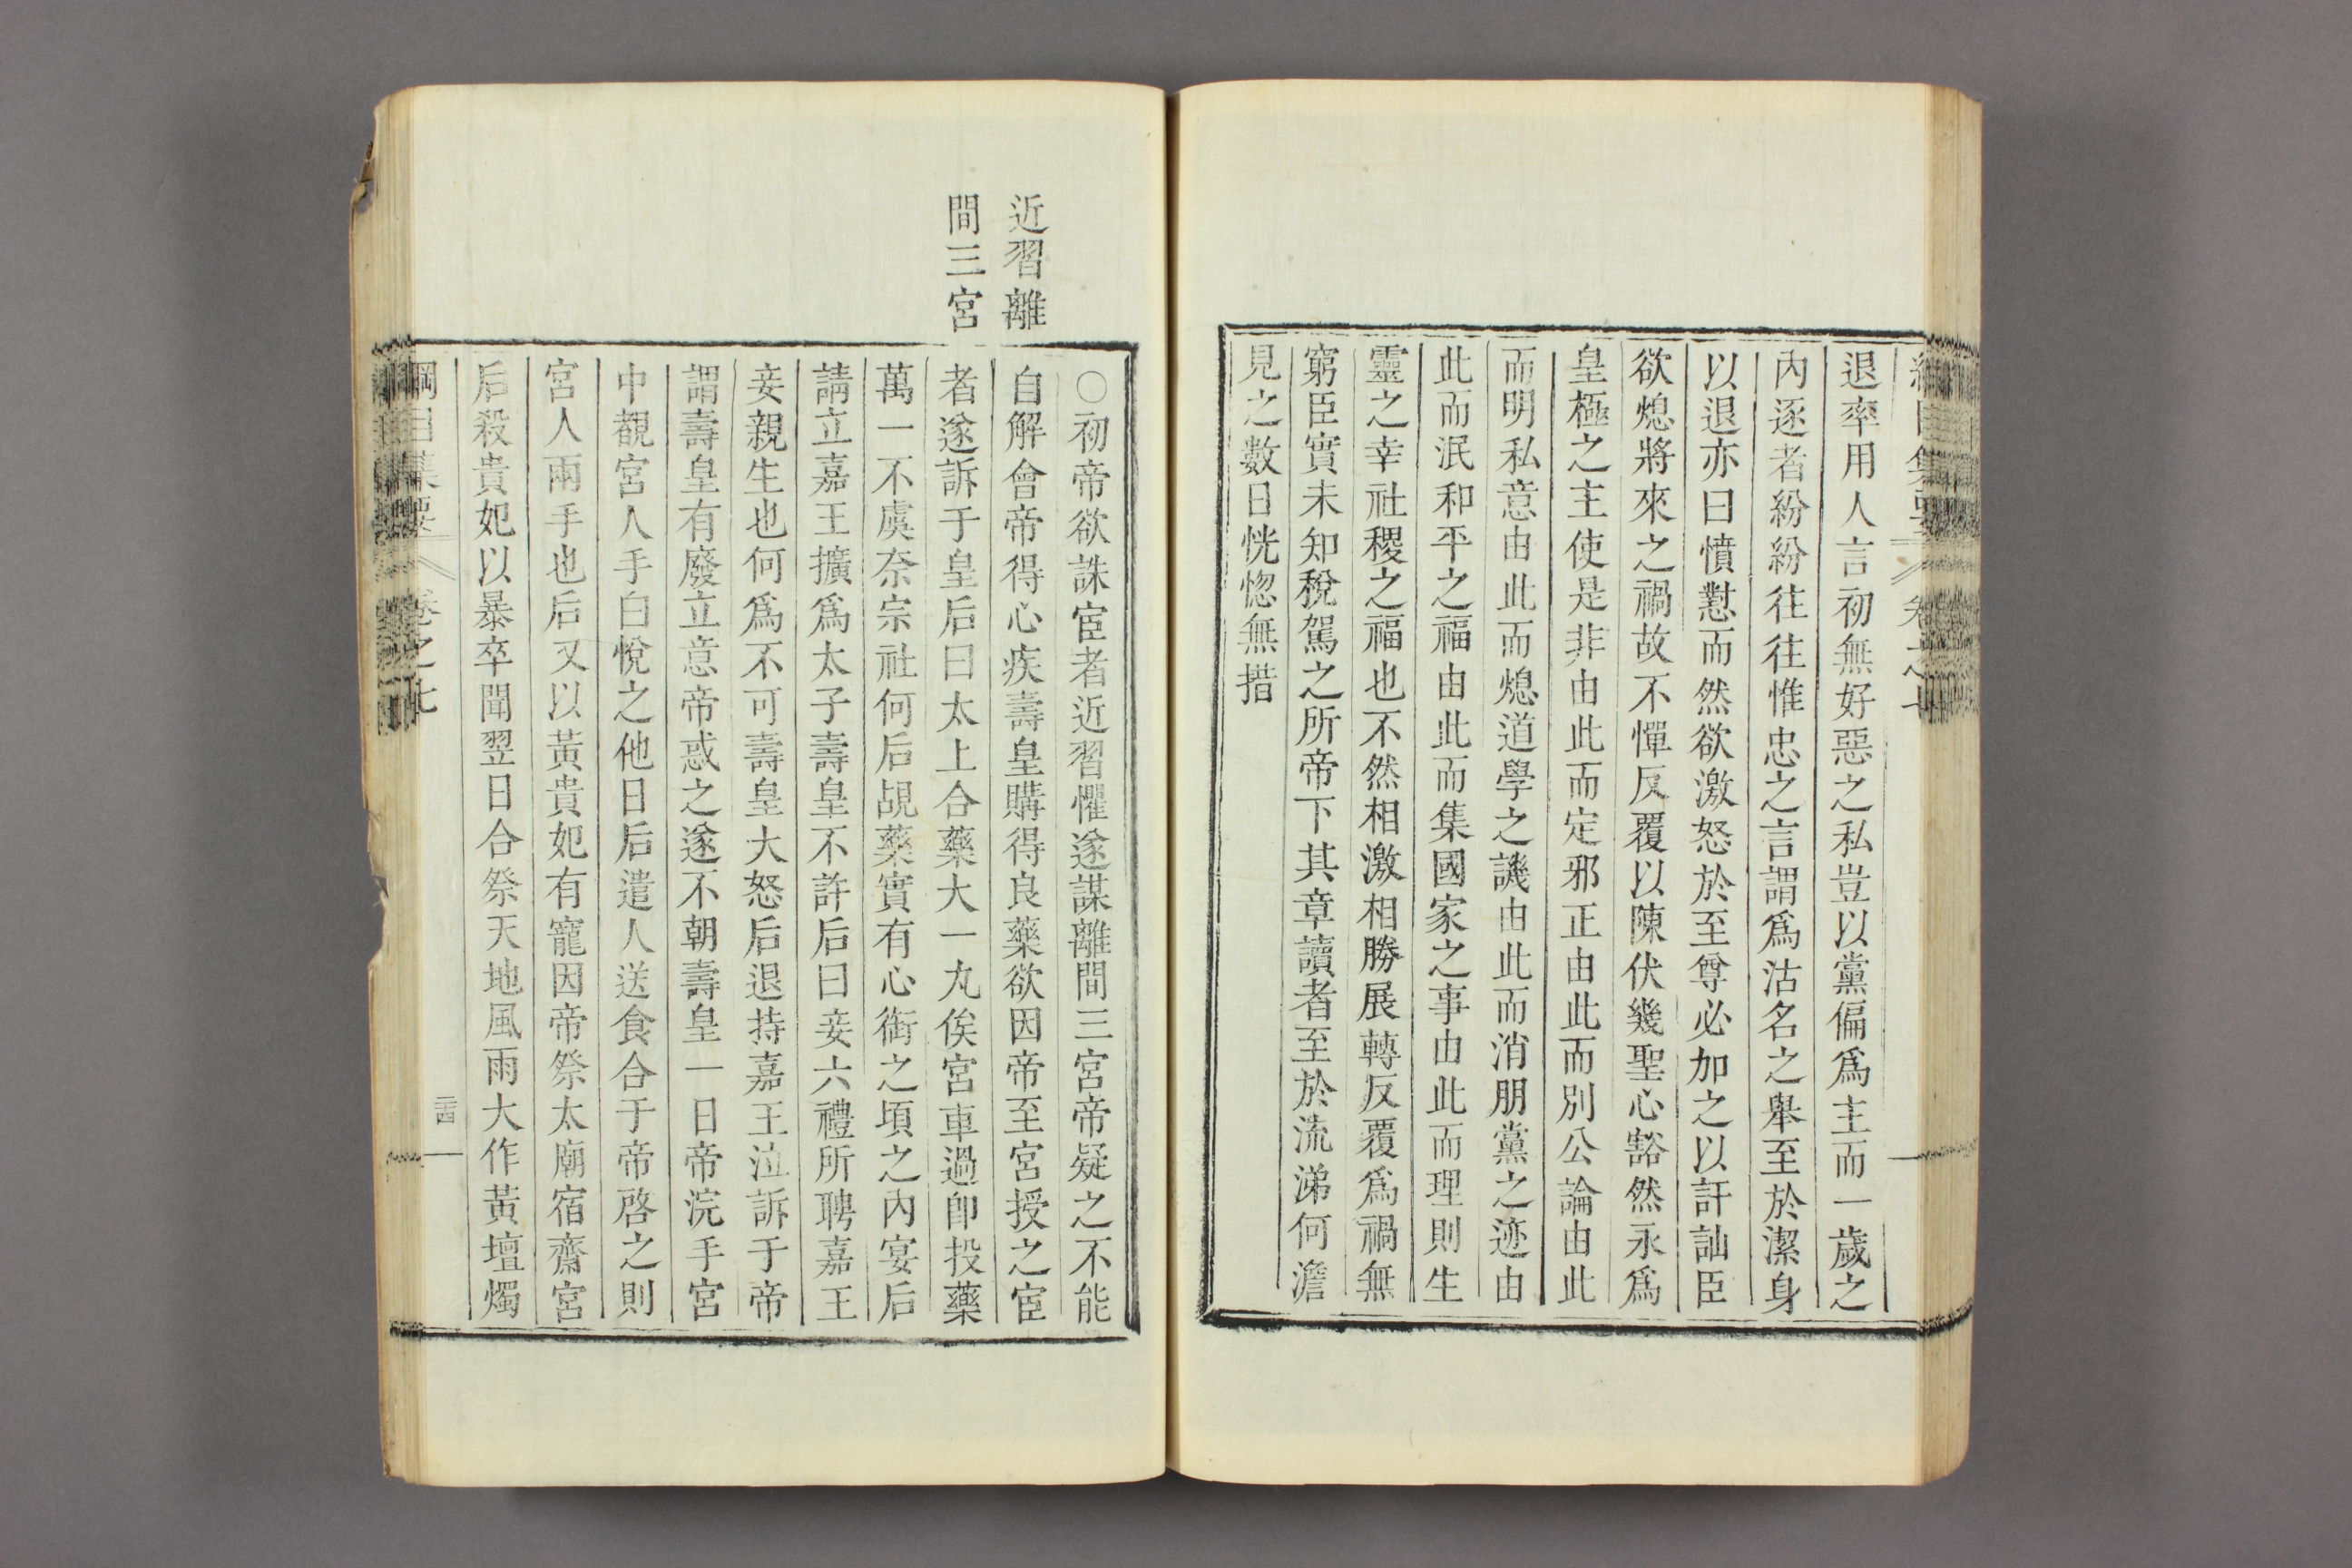 退率用人言初無好惡之私豈以黨偏爲主而一歲之
內逐者紛紛往往惟忠之言謂爲沽名之舉至於潔身
以退亦曰憤懟而然欲激怒於至尊必加之以訐訕臣
欲熄將來之禍故不憚反覆以陳伏幾聖心豁然永爲
皇極之主使是非由此而定邪正由此而別公論由此
而明私意由此而熄道學之譏由此而消朋黨之迹由
此而泯和平之福由此而集國家之事由此而理則生
靈之幸社稷之福也不然相激相勝展轉反覆爲禍無
窮臣實未知稅駕之所帝下其章讀者至於流涕何澹
見之數日恍惚無措
近習離
間三宮
○初帝欲誅宦者近習懼遂謀離間三宮帝疑之不能
自解會帝得心疾壽皇購得良藥欲因帝至宮授之宦
者遂訴于皇后曰太上合藥大一丸俟宮車過卽投藥
萬一不虞奈宗社何后覘藥實有心銜之頃之內宴后
請立嘉王擴爲太子壽皇不許后曰妾六禮所聘嘉王
妾親生也何爲不可壽皇大怒后退持嘉王泣訴于帝
謂壽皇有廢立意帝惑之遂不朝壽皇一日帝浣手宮
中覩宮人手白悅之他日后遣人送食合于帝啓之則
宮人兩手也后又以黃貴妃有寵因帝祭太廟宿齋宮
后殺貴妃以暴卒聞翌日合祭天地風雨大作黃壇燭
綱目集要 卷之七